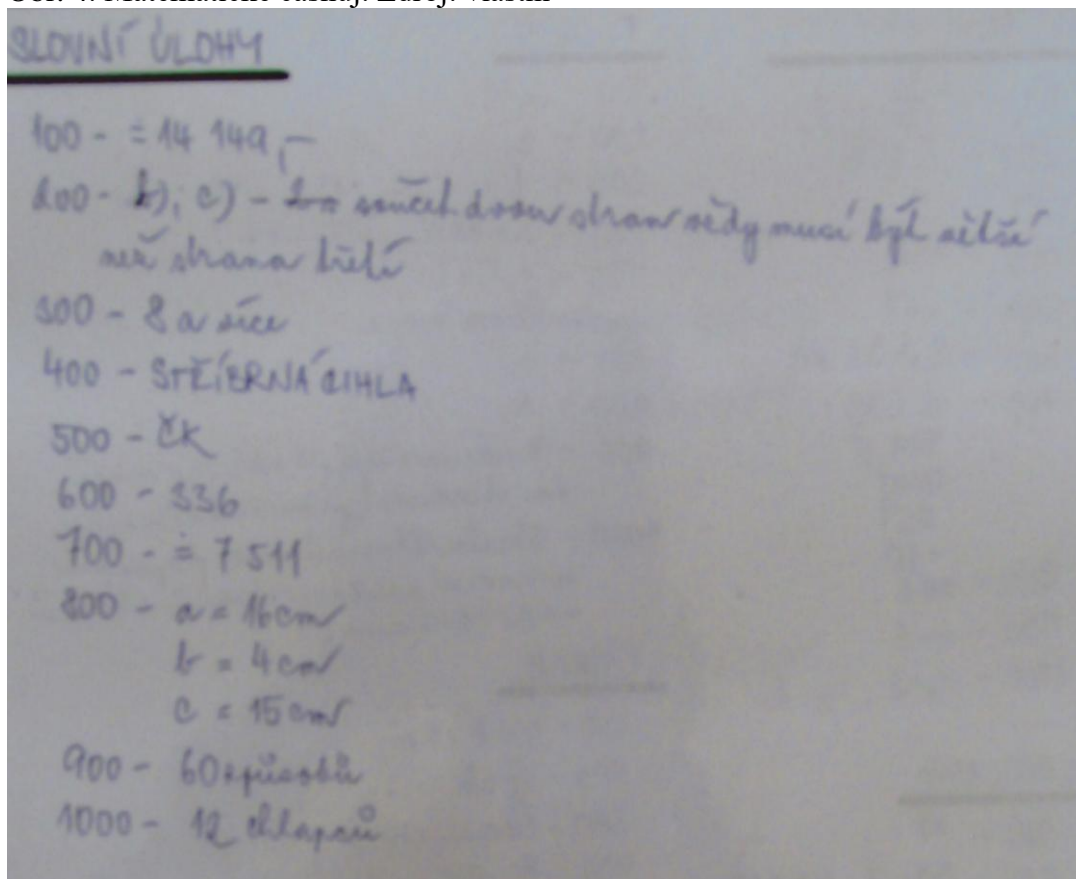 SLOVNÍ ÚLOHY
100 - ≐ 14 149,-
200 - b), c) - součet dvou stran vždy musí být větší
než strana třetí
300 - 8 a více
400 - STŘÍBRNÁ CIHLA
500 - ČK
600 - 336
700 - ≐ 7 511
800 - a = 16 cm
b = 4 cm
c = 15 cm
900 - 60 způsobů
1000 - 12 chlapců